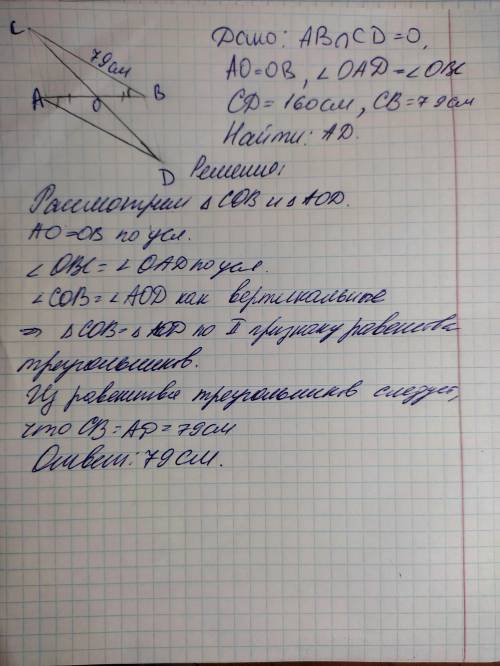 C
79см
A
O
B
D
Дано: AB∩CD=O,
AO=OB, ∠OAD=∠OBC
CD=160см, CB=79см
Найти: AD.
Решение:
Рассмотрим △COB и △AOD.
AO=OB по усл.
∠OBC=∠OAD по усл.
∠COB=∠AOD как вертикальные
⇒ △COB=△AOD по II признаку равенства
треугольников.
Из равенства треугольников следует,
что CB=AD=79см
Ответ: 79см.